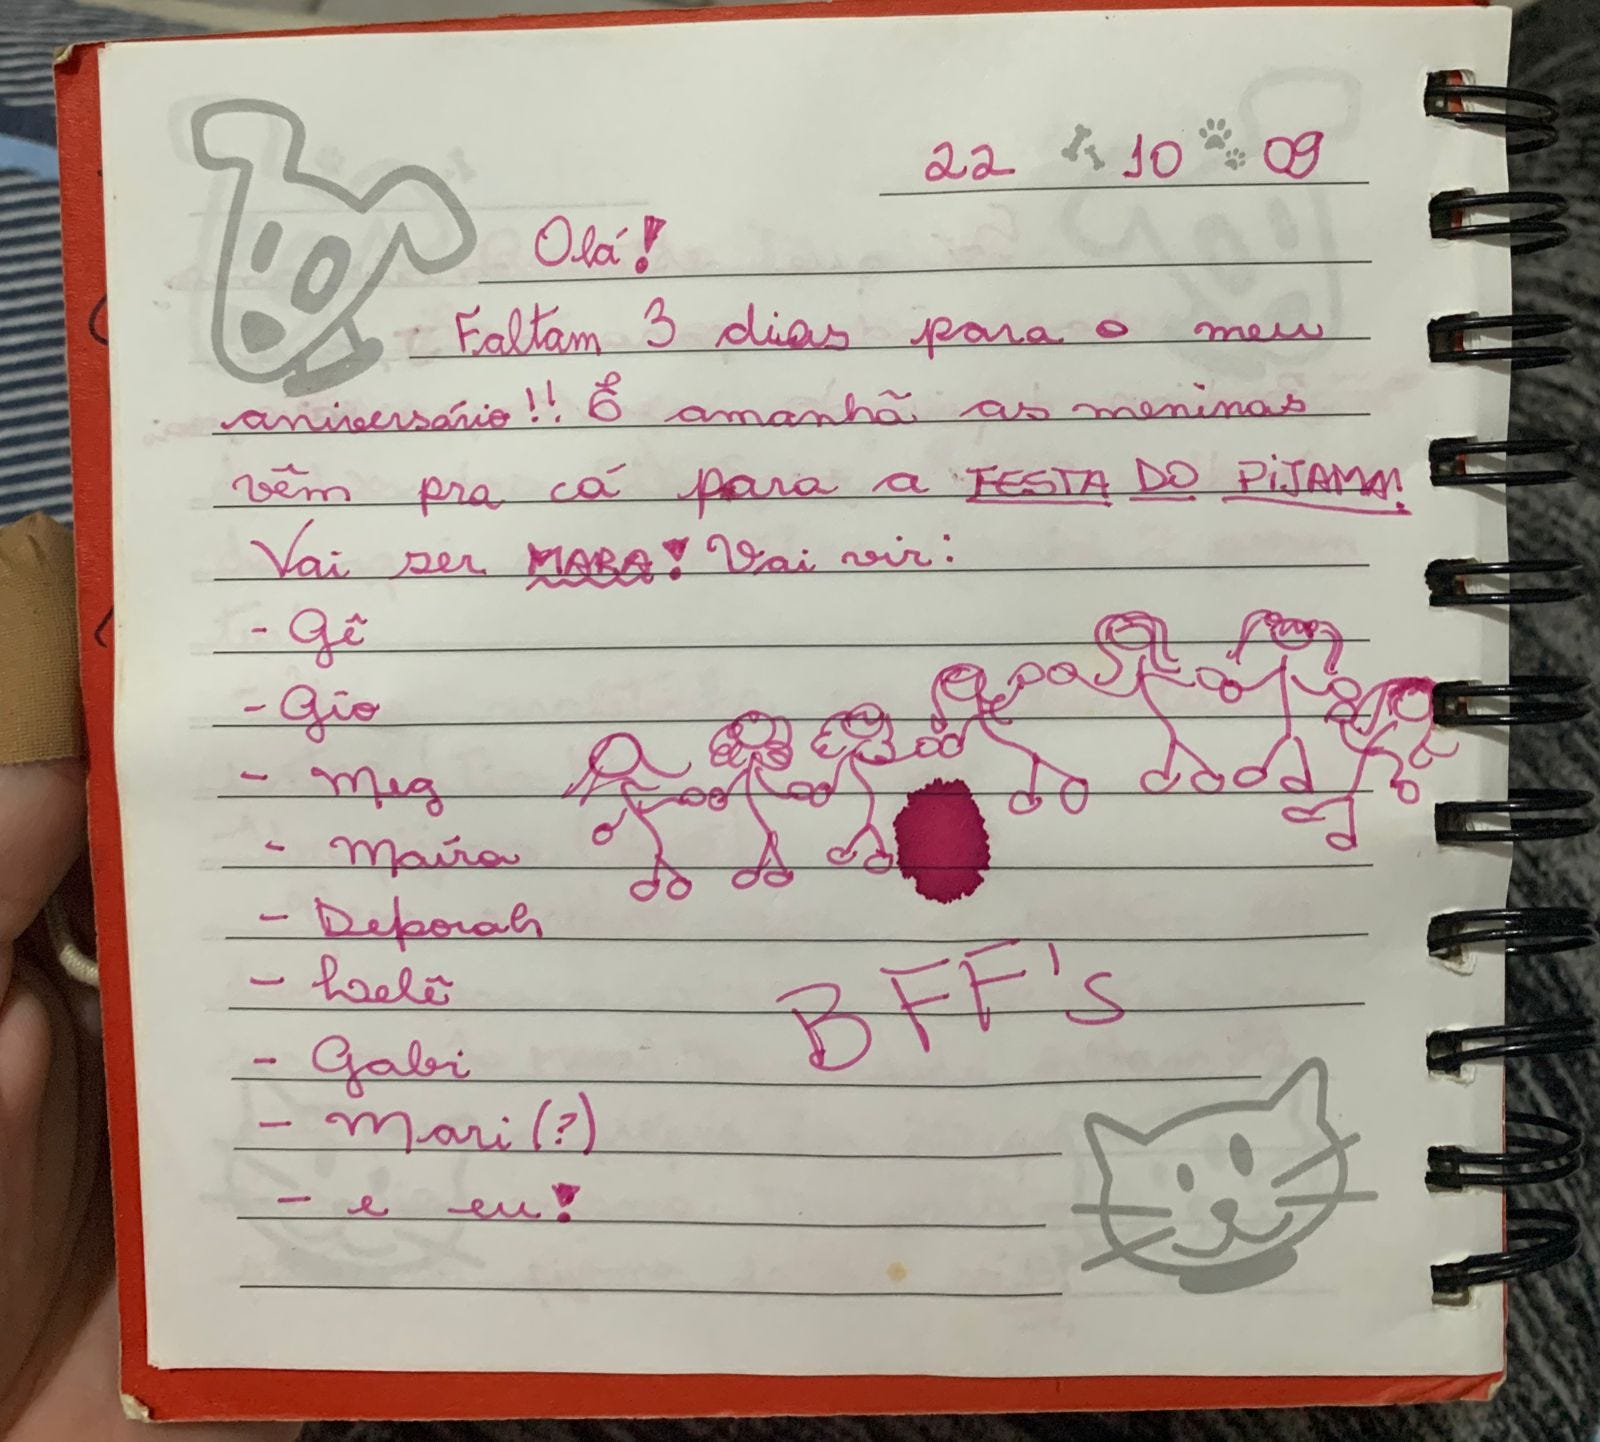 22 10 09
Olá!
Faltam 3 dias para o meu
aniversário!! E amanhã as meninas
vêm pra cá para a FESTA DO PIJAMA!
Vai ser MARA! Vai vir:
- Gê
- Gio
- Meg
- Maíra
- Deborah
- Lelê
- Gabi
- Mari (?)
- e eu!
BFF's